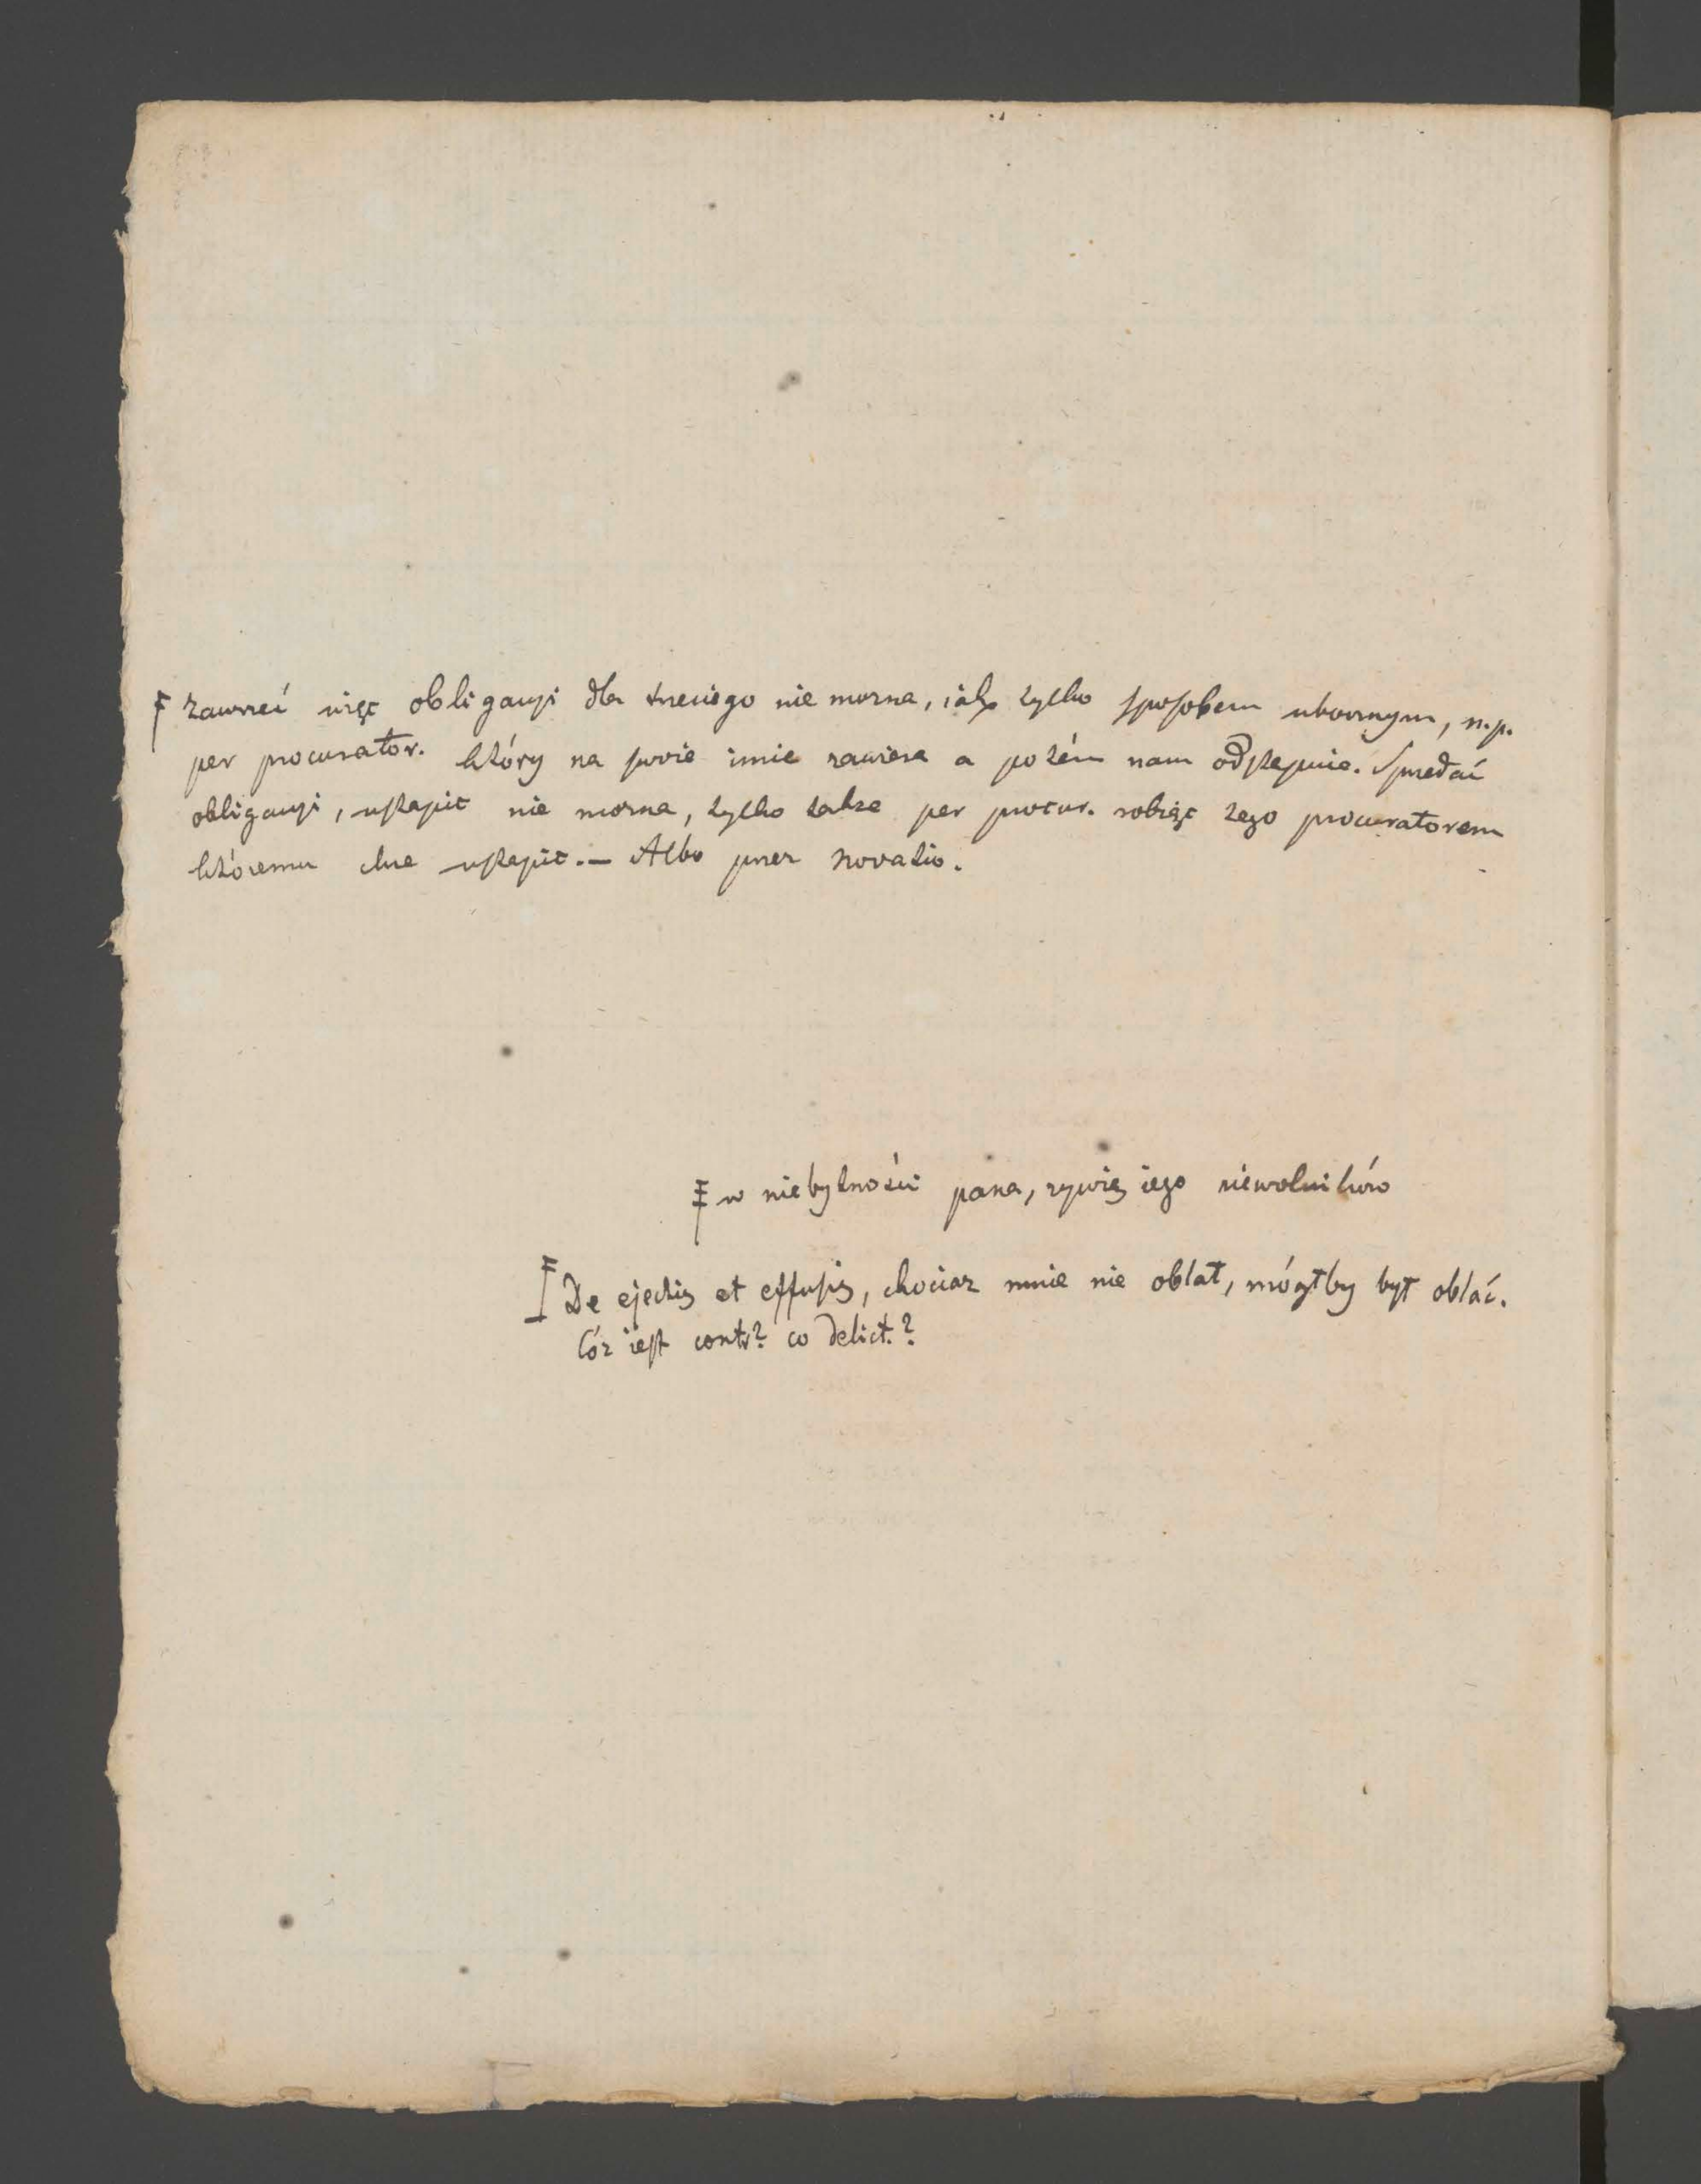 zawrzeć więc obligacyi dla trzeciego nie można, iak tylko sposobem ubocznym, n.p.
per procurator. który na swoie imie zawiera a potém nam odstępuie. Sprzedać
obligacyi, ustąpić nie można, tylko także per procur. robiąc tego procuratorem
któremu chce ustąpić. — Albo przez novatio.
w niebytności pana, żywią iego niewolników
De ejectis et effusis, chociaż mnie nie oblał, mógłby był oblać.
Cóż iest contr? co delict.?